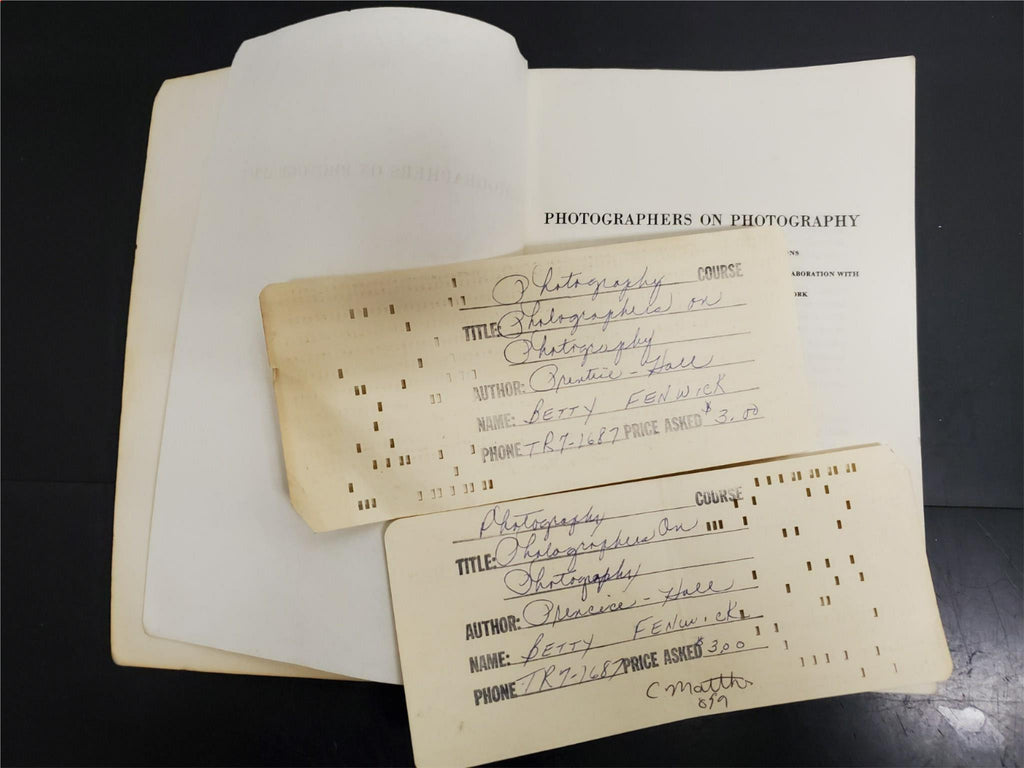 PHOTOGRAPHERS ON PHOTOGRAPHY
NS
ABORATION WITH
RK
Photography COURSE
TITLE: Photographers on
Photography
AUTHOR: Prentice-Hall
NAME: BETTY FENWICK
PHONE TR7-1687 PRICE ASKED $3.00
Photography COURSE
TITLE: Photographers On
Photography
AUTHOR: Prencice-Hall
NAME: BETTY FENWICK
PHONE TR7-1687 PRICE ASKED $300
C Matth